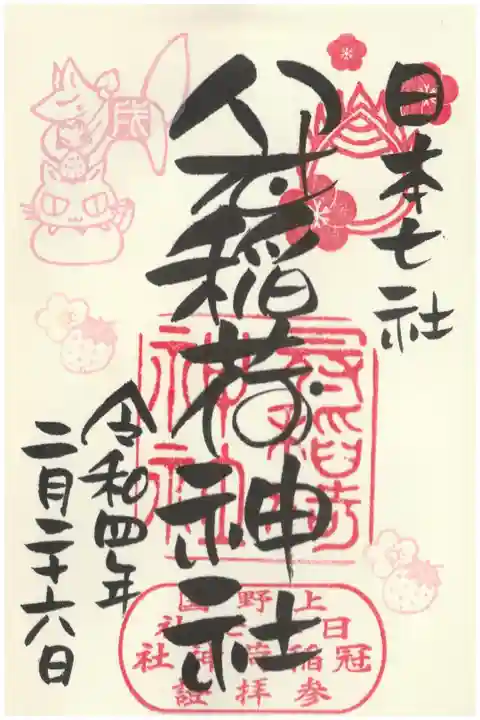 日本七社
冠稲荷神社
令和四年
二月二十六日
戌
冠稲荷
神社
上野国
日本七社
冠稲荷神社
参拝證